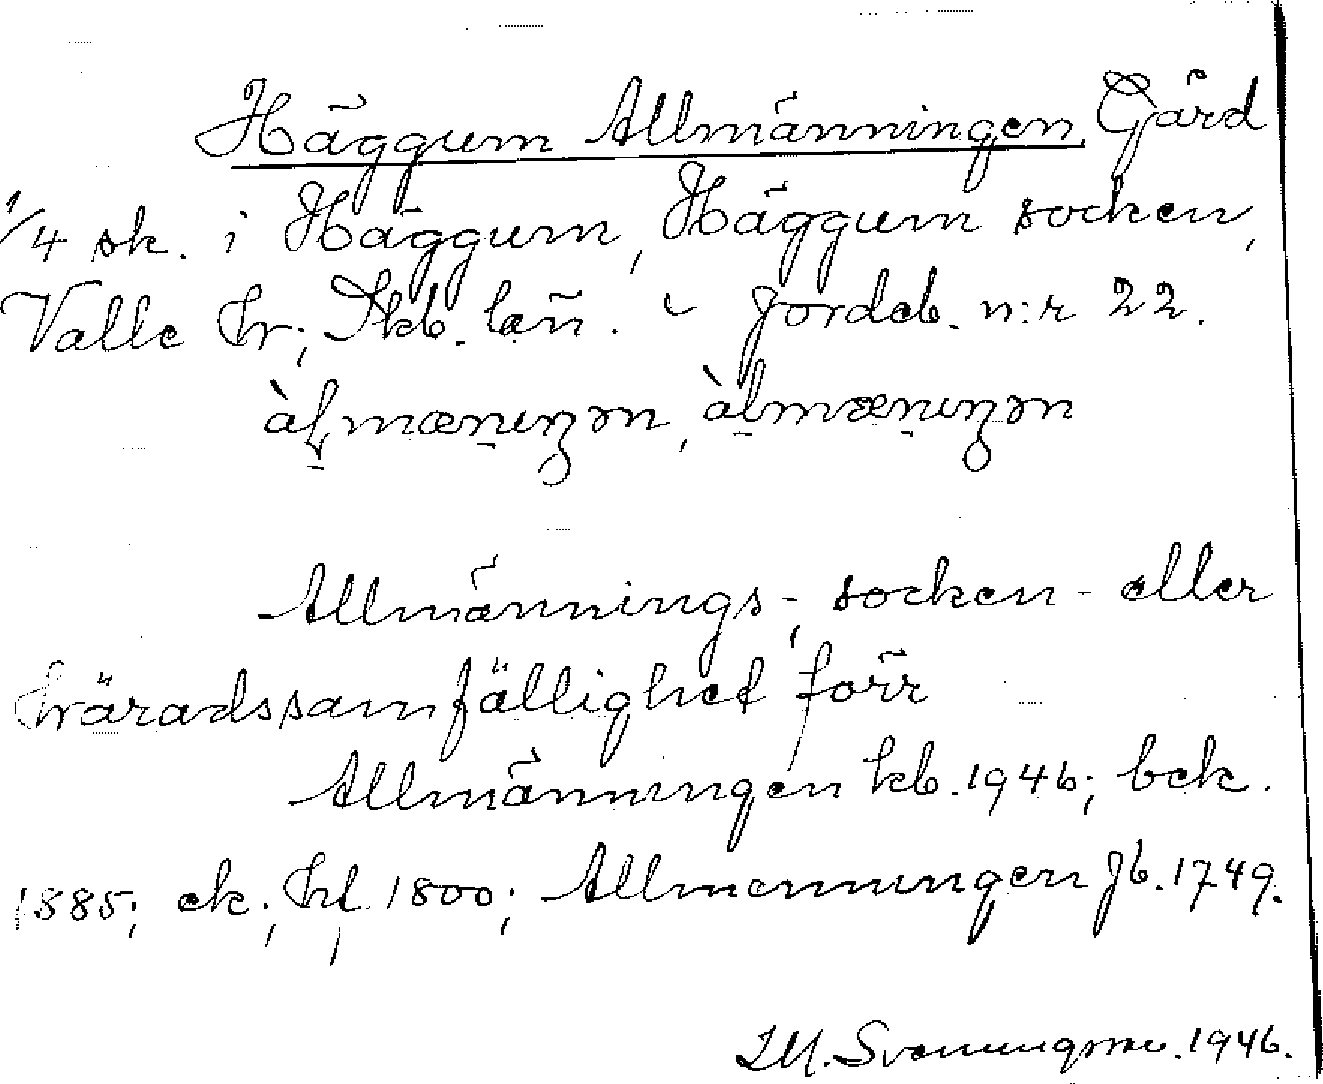 Häggum Allmänningen, Gård
1/4 sk. i Häggum, Häggum socken,
Valle hr; Skb. län. - Jordeb. n:r 22.
àlmæniŋən, àlmæniŋən
Allmännings-, socken- eller
häradssamfällighet förr
Allmänningen kb. 1946; bek.
1885; ek; hf 1800; Allmenningen Jb. 1749.
Svenungsson. 1946.